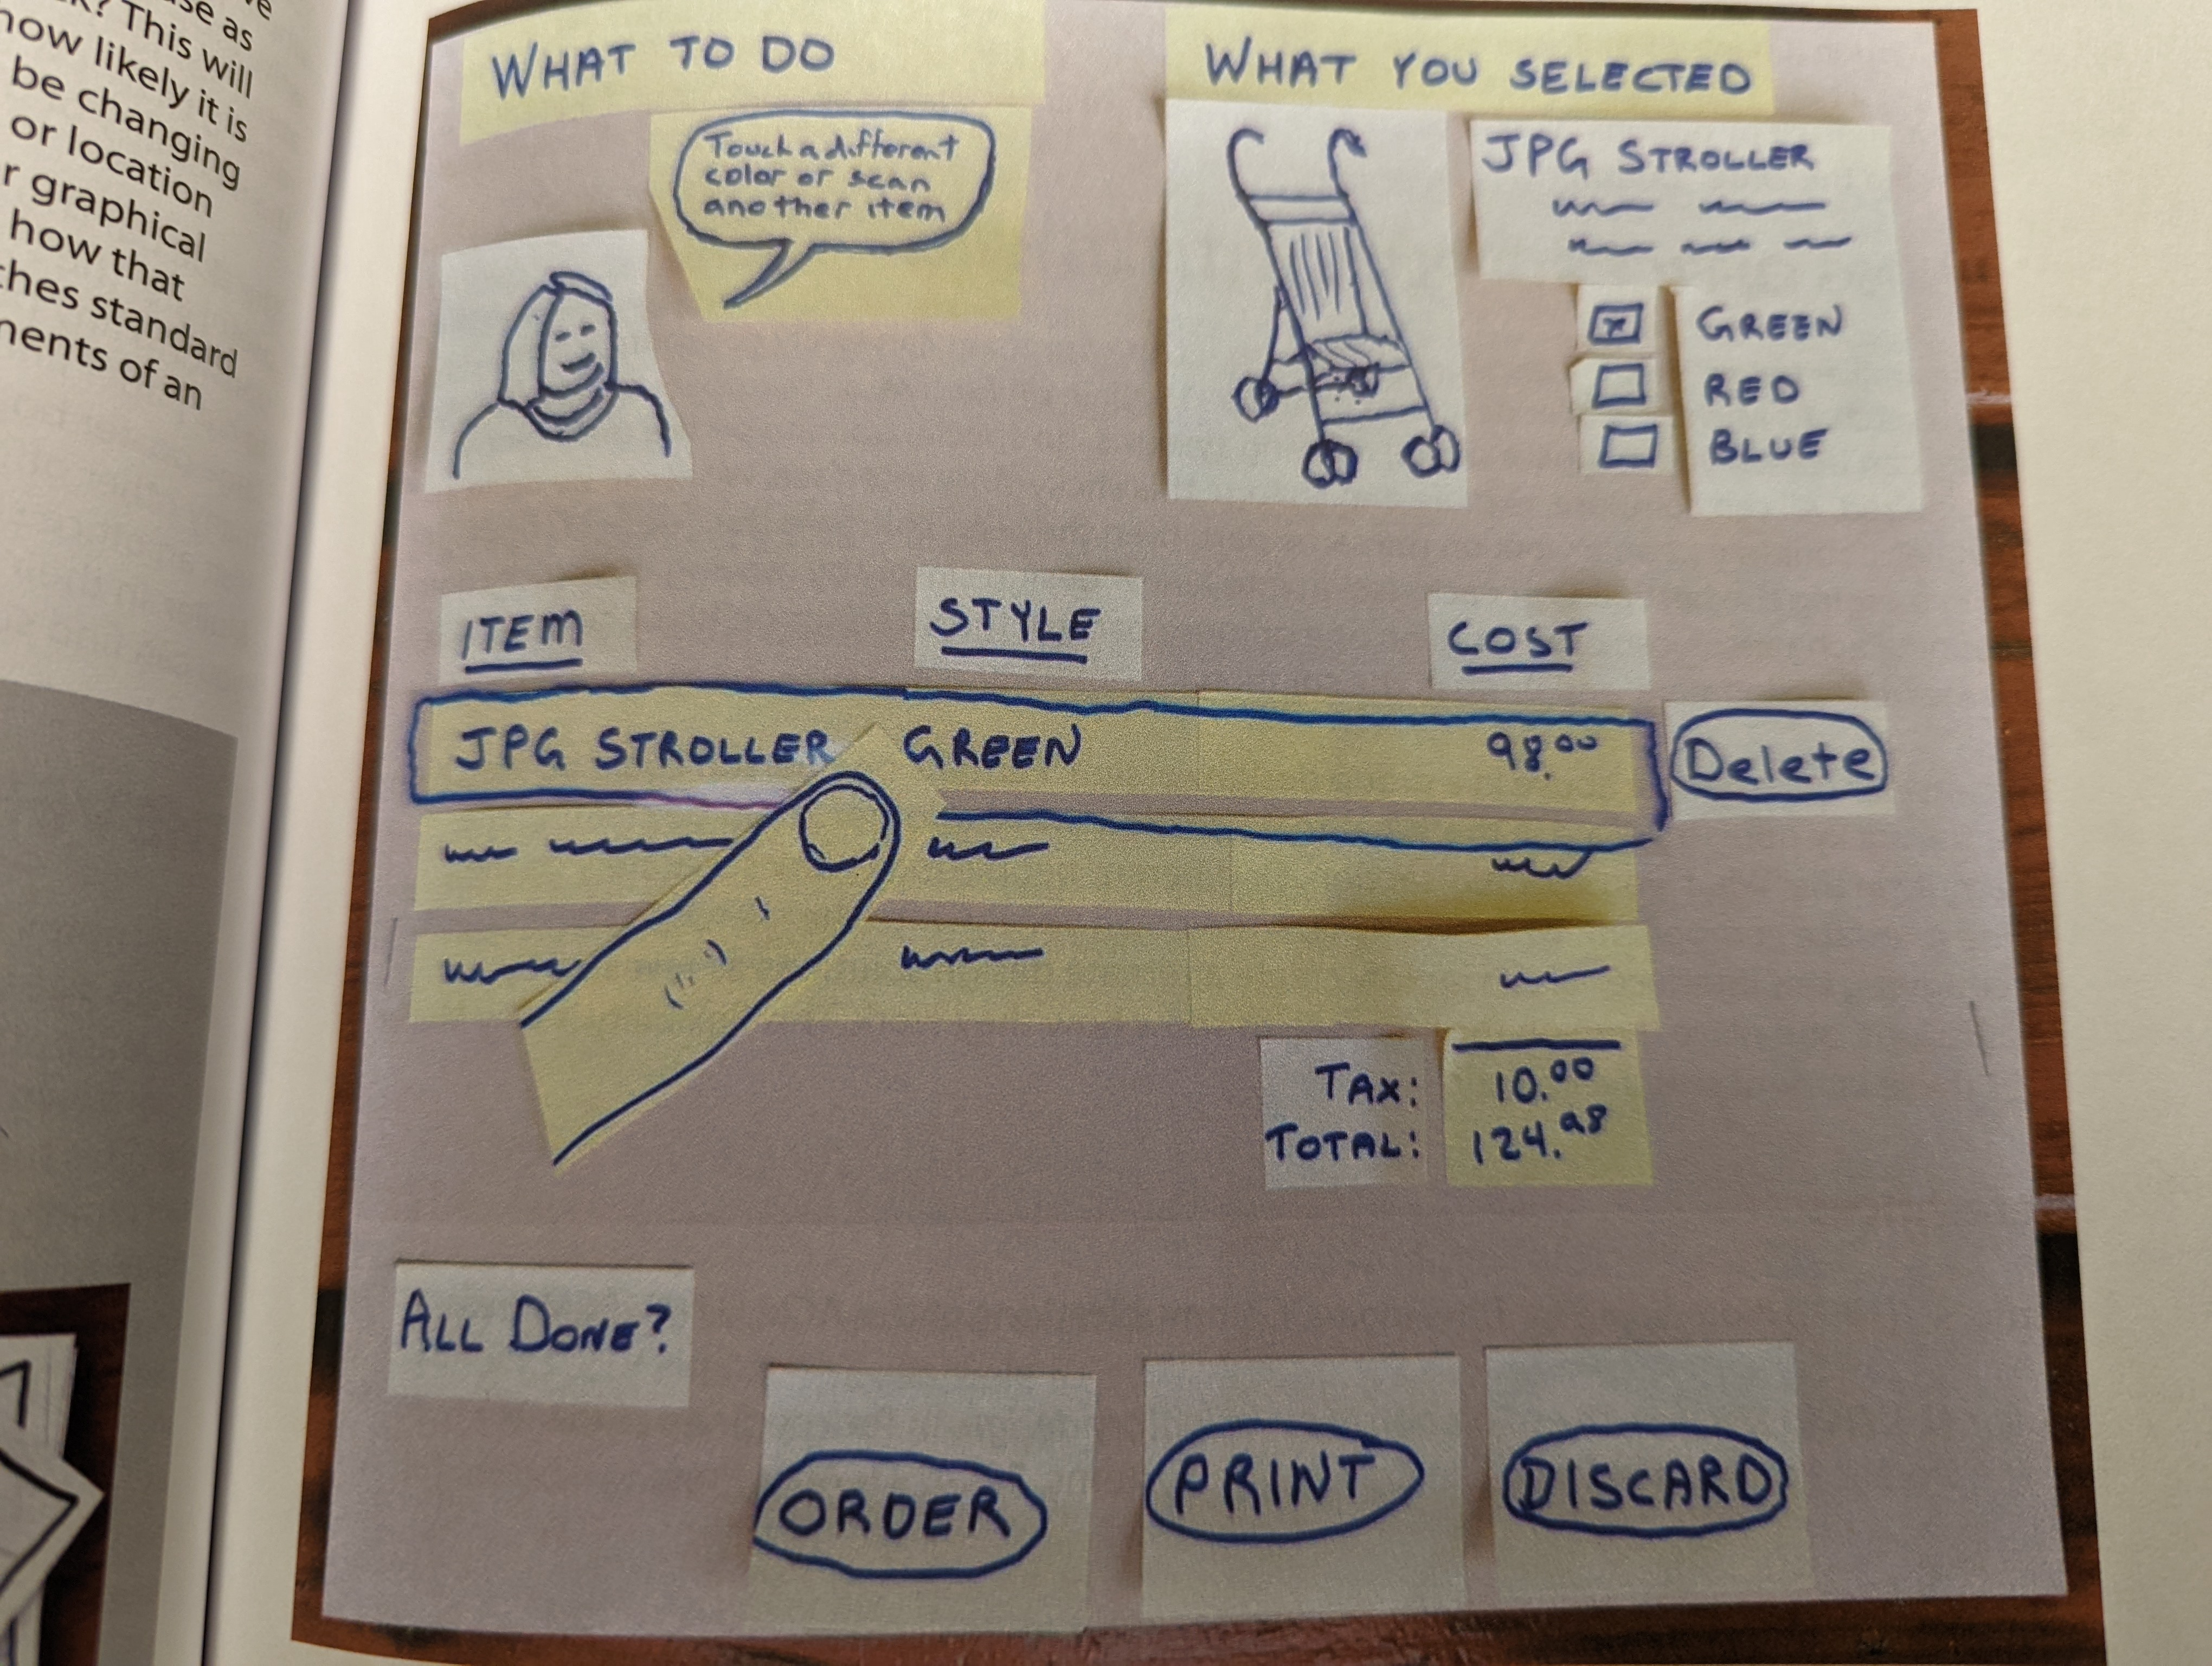 se as
? This will
now likely it is
be changing
or location
r graphical
how that
ches standard
nents of an
WHAT TO DO
Touch a different
color or scan
another item
WHAT YOU SELECTED
JPG STROLLER
GREEN
RED
BLUE
ITEM STYLE COST
JPG STROLLER GREEN 98.00 Delete
TAX: 10.00
TOTAL: 124.98
ALL DONE?
ORDER PRINT DISCARD